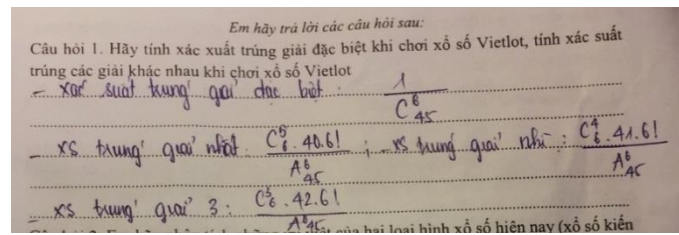 Em hãy trả lời các câu hỏi sau:
Câu hỏi 1. Hãy tính xác xuất trúng giải đặc biệt khi chơi xổ số Vietlot, tính xác suất
trúng các giải khác nhau khi chơi xổ số Vietlot
- xác suất trúng giải đặc biệt : 1 / C⁶₄₅
- xs trúng giải nhất : C⁵₆ . 40.6! / A⁶₄₅ ; - xs trúng giải nhì : C⁴₆ . 41.6! / A⁶₄₅
- xs trúng giải 3 : C³₆ . 42.6! / A⁶₄₅
của hai loại hình xổ số hiện nay (xổ số kiến